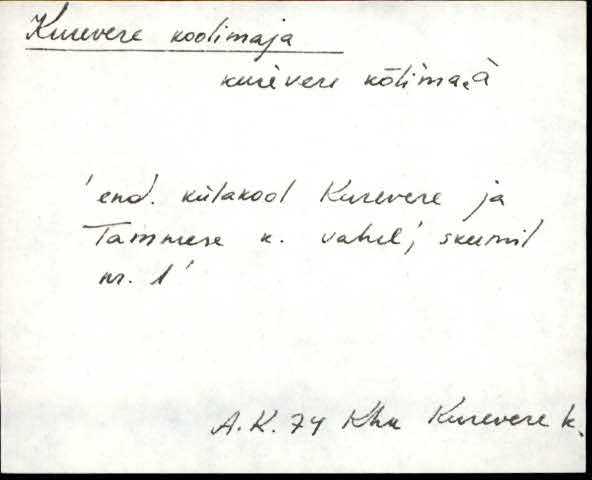 Kurevere koolimaja
kurevere kōlima.ä
'end. külakool Kurevere ja
Tammese k. vahel', skeemil
nr. 1'
A.K. 74 Khn Kurevere k.